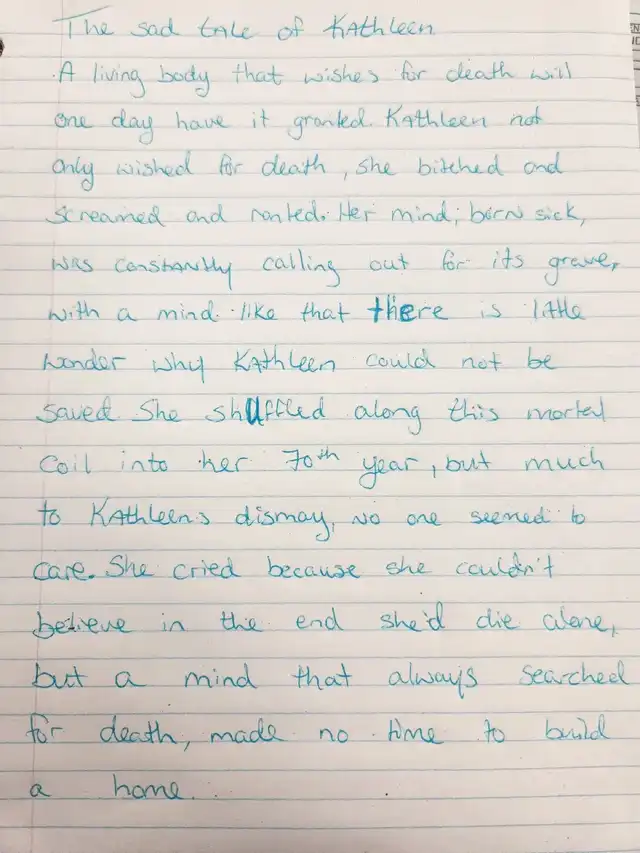 The sad tale of Kathleen
A living body that wishes for death will
one day have it granted. Kathleen not
only wished for death, she bitched and
screamed and ranted. Her mind, born sick,
was constantly calling out for its grave,
with a mind like that there is little
wonder why Kathleen could not be
saved. She shuffled along this mortal
coil into her 70th year, but much
to Kathleen's dismay, no one seemed to
care. She cried because she couldn't
believe in the end she'd die alone,
but a mind that always searched
for death, made no time to build
a home.